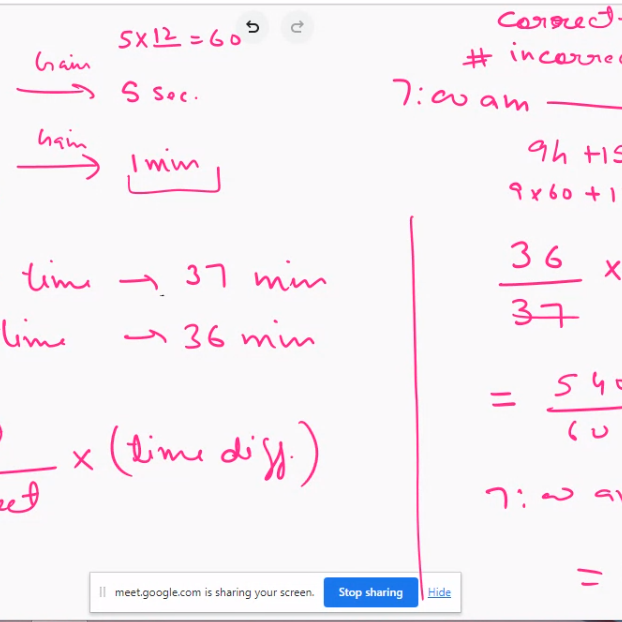 5 x 12 = 60
Gain
5 sec.
Gain
1 min
time → 37 min
time → 36 min
x (time diff.)
correct
# incorre
7:00 am
9h + 15
9 x 60 + 1
36
37
x
= 540
60
7:00 a
=
meet.google.com is sharing your screen. Stop sharing Hide